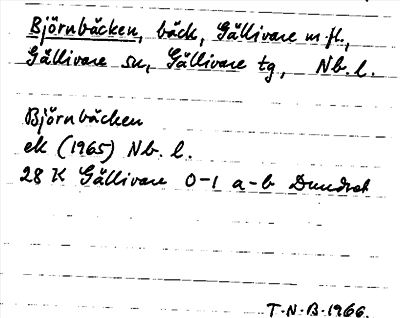 Björnbäcken, bäck, Gällivare m.fl.,
Gällivare sn, Gällivare tg, Nb. l.
Björnbäcken
ek (1965) Nb. l.
28 K Gällivare 0-1 a-b Dundret
T.N.B.1966.